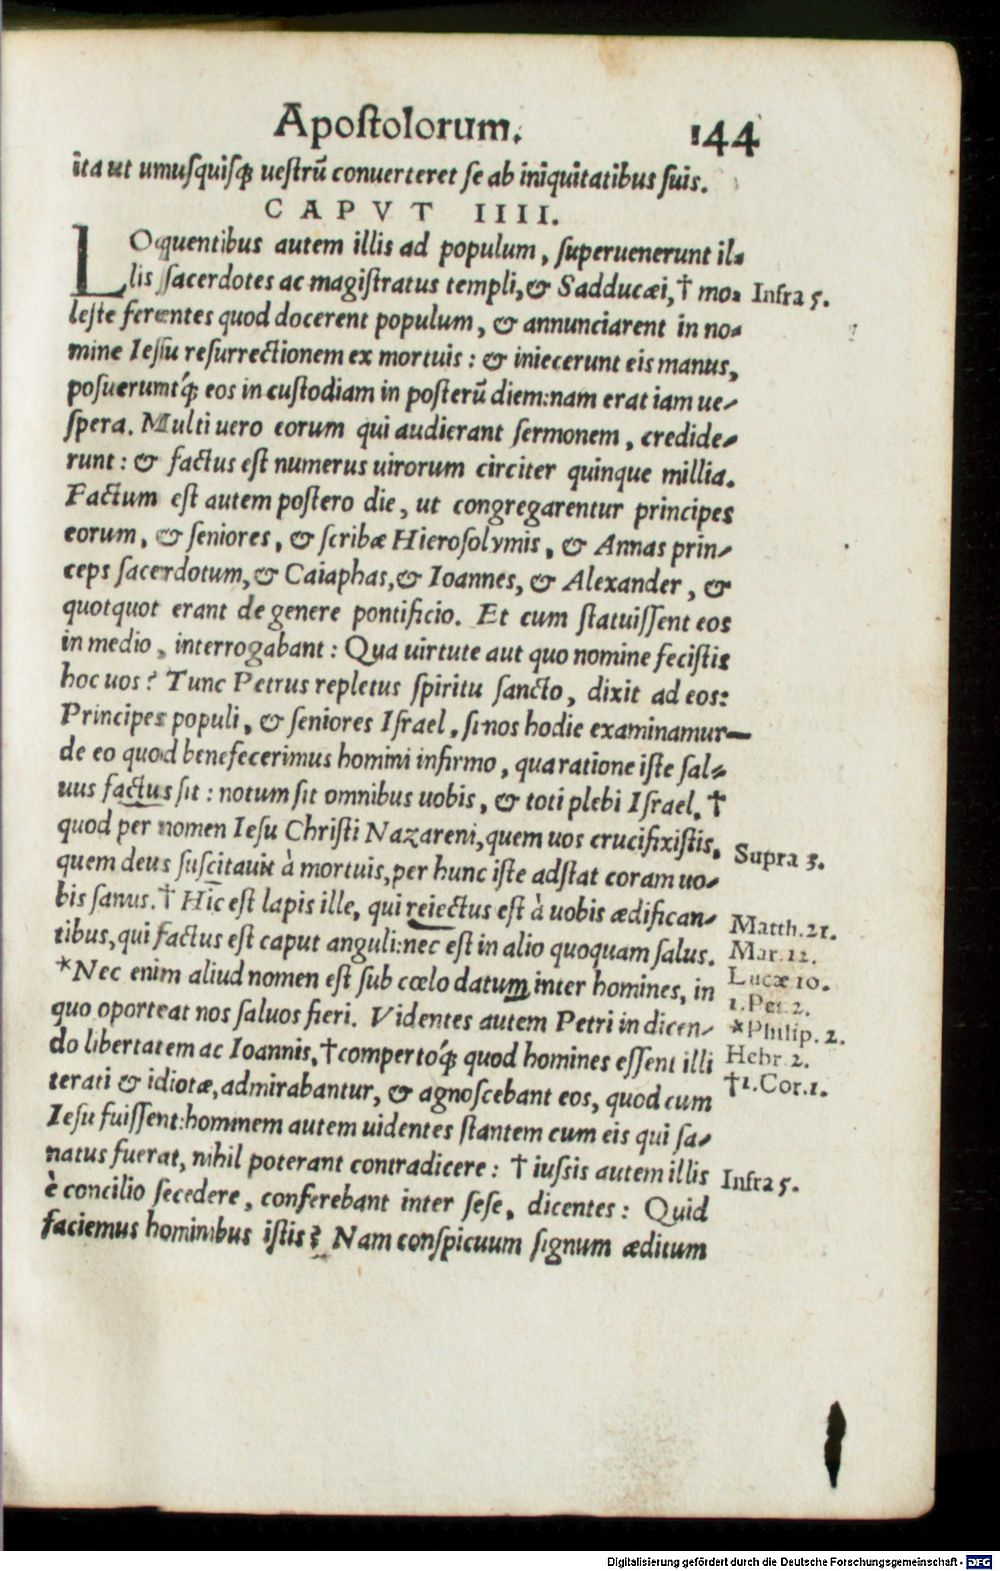 Apostolorum. 144
ita ut unusquisq; uestrũ conuerteret se ab iniquitatibus suis.
CAPVT IIII.
LOquentibus autem illis ad populum, superuenerunt il-
lis sacerdotes ac magistratus templi, & Sadducæi, † mo- Infra 5.
leste ferentes quod docerent populum, & annunciarent in no-
mine Iesu resurrectionem ex mortuis: & iniecerunt eis manus,
posuerumtq́; eos in custodiam in posterũ diem: nam erat iam ue-
spera. Multi uero eorum qui audierant sermonem, credide-
runt: & factus est numerus uirorum circiter quinque millia.
Factum est autem postero die, ut congregarentur principes
eorum, & seniores, & scribæ Hierosolymis, & Annas prin-
ceps sacerdotum, & Caiaphas, & Ioannes, & Alexander, &
quotquot erant de genere pontificio. Et cum statuissent eos
in medio, interrogabant: Qua uirtute aut quo nomine fecistis
hoc uos? Tunc Petrus repletus spiritu sancto, dixit ad eos:
Principes populi, & seniores Israel, si nos hodie examinamur
de eo quod benefecerimus homini infirmo, qua ratione iste sal-
uus factus sit: notum sit omnibus uobis, & toti plebi Israel, †
quod per nomen Iesu Christi Nazareni, quem uos crucifixistis, Supra 3.
quem deus suscitauit à mortuis, per hunc iste adstat coram uo-
bis sanus. † Hic est lapis ille, qui reiectus est à uobis ædifican- Matth. 21.
tibus, qui factus est caput anguli: nec est in alio quoquam salus. Mar. 12.
*Nec enim aliud nomen est sub cœlo datum inter homines, in Lucæ 10.
1. Pet. 2.
quo oporteat nos saluos fieri. Videntes autem Petri in dicen- *Philip. 2.
do libertatem ac Ioannis, † compertoq́; quod homines essent illi Hebr. 2.
terati & idiotæ, admirabantur, & agnoscebant eos, quod cum †1. Cor. 1.
Iesu fuissent: hominem autem uidentes stantem cum eis qui sa-
natus fuerat, nihil poterant contradicere: † iussis autem illis Infra 5.
è concilio secedere, conferebant inter sese, dicentes: Quid
faciemus hominibus istis? Nam conspicuum signum æditum
Digitalisierung gefördert durch die Deutsche Forschungsgemeinschaft - DFG